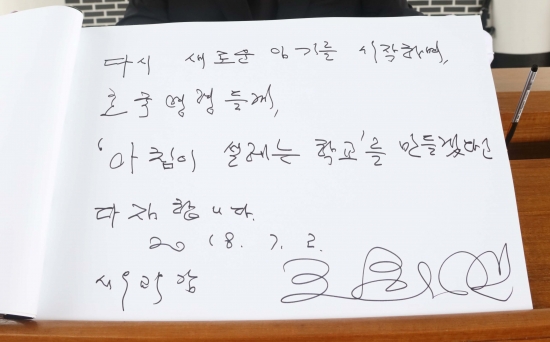 다시 새로운 임기를 시작하며,
호국 영령 들께,
'아침이 설레는 학교'를 만들겠다고
다짐합니다.
2018. 7. 2.